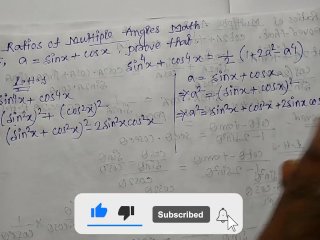 Ratios of Multiple Angles Math
a = sinx + cosx prove that
sin⁴x + cos⁴x = 1/2 (1+2a²-a⁴)
L.H.S
sin⁴x + cos⁴x
(sin²x)² + (cos²x)²
(sin²x + cos²x)² - 2sin²x cos²x
a = sinx + cosx
⇒ a² = (sinx + cosx)²
⇒ a² = sin²x + cos²x + 2sinx cos
Subscribed